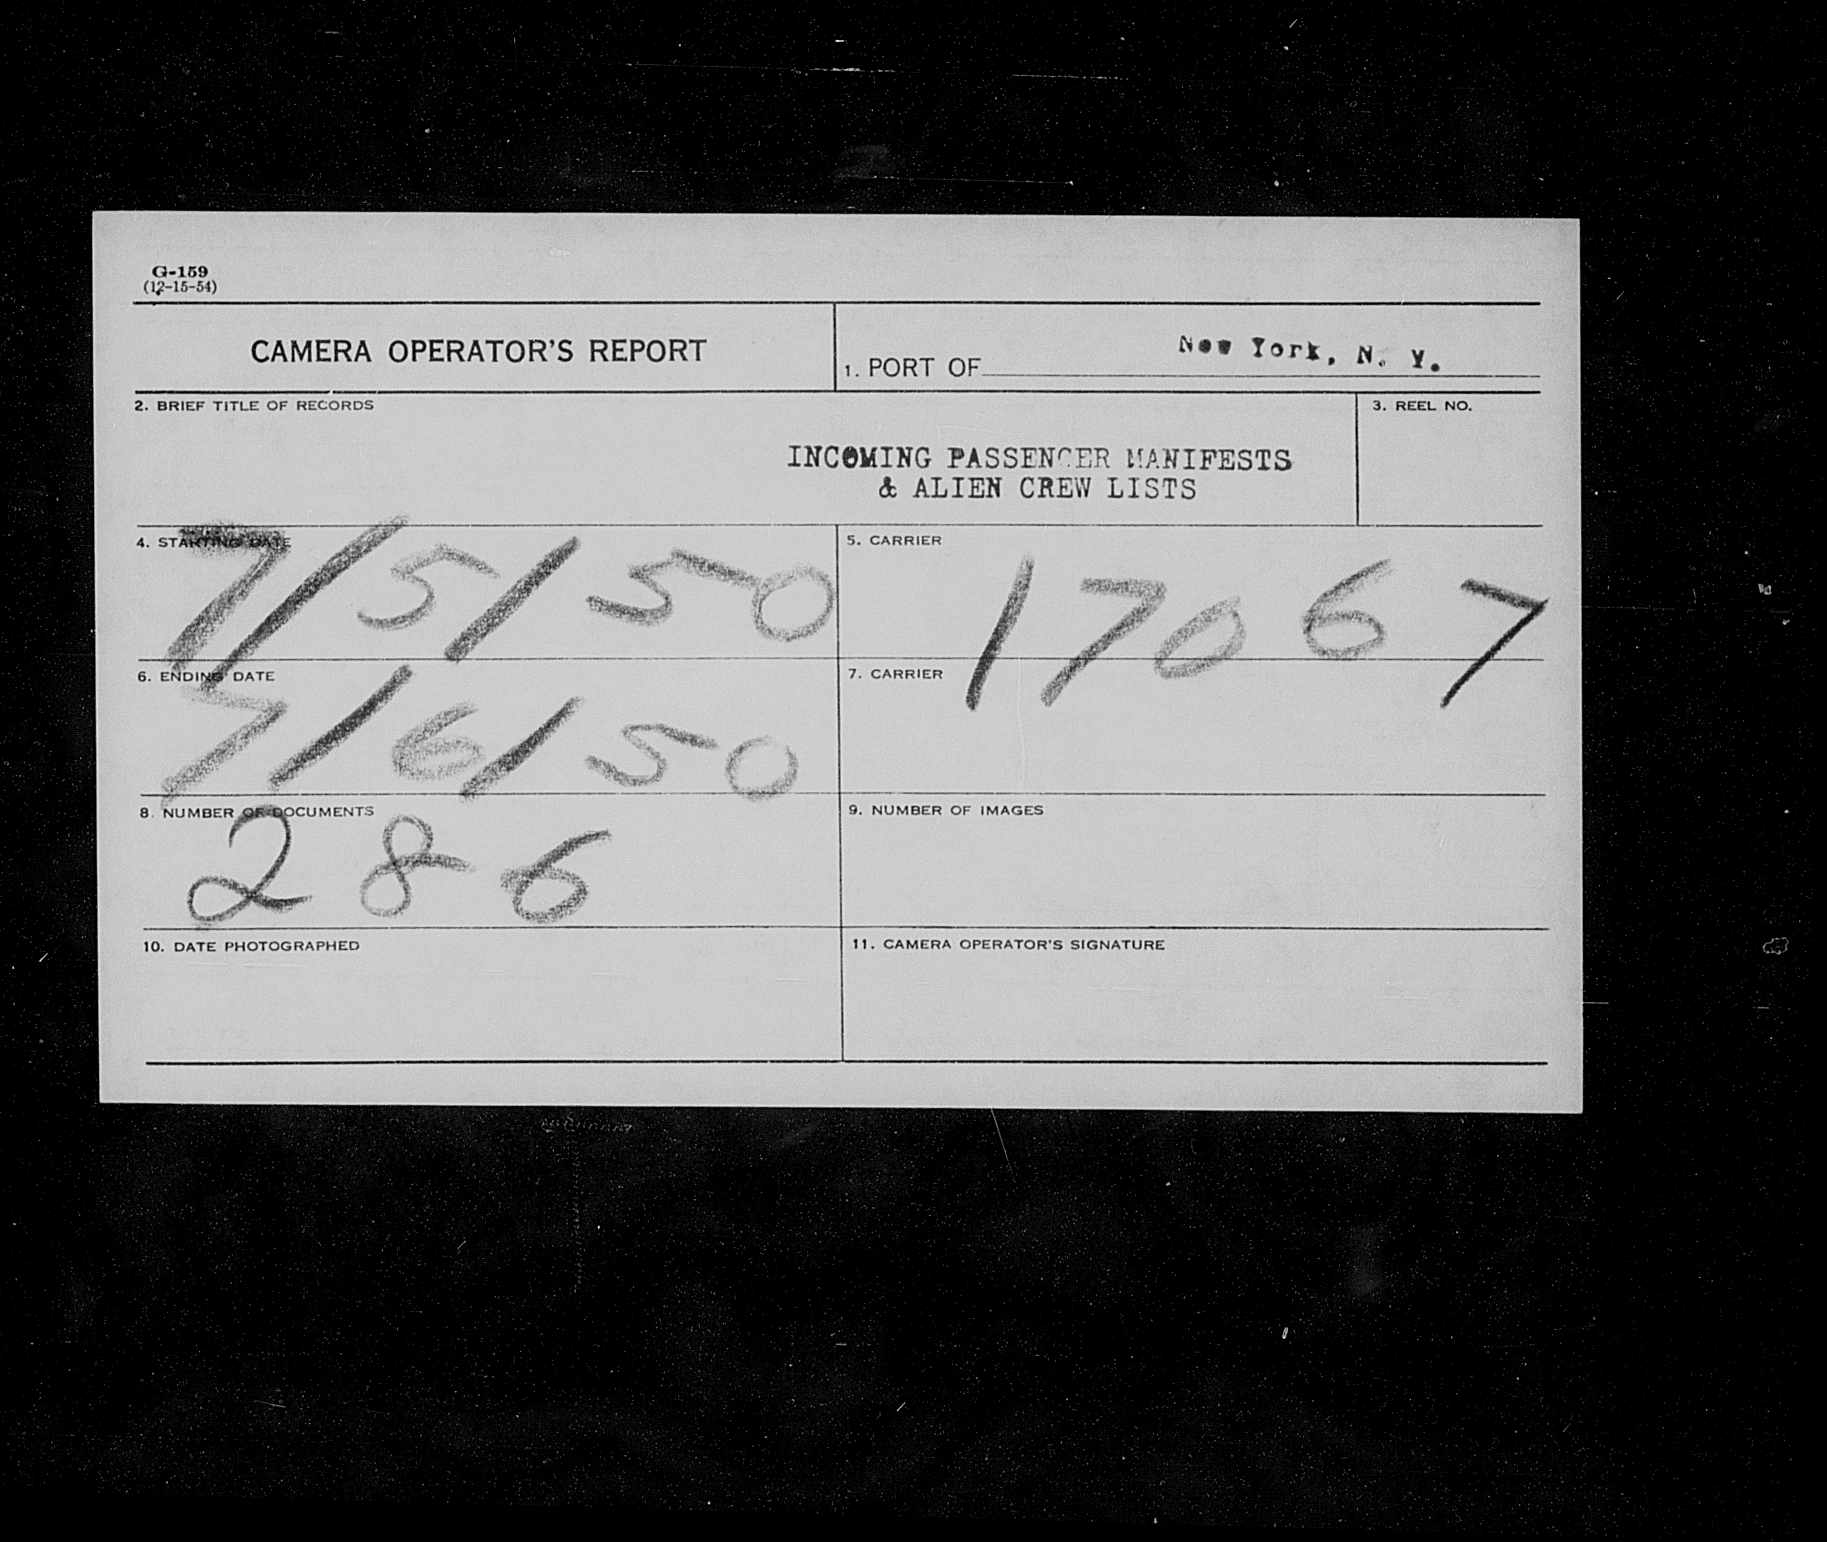 G-159
(12-15-54)
CAMERA OPERATOR'S REPORT
1. PORT OF New York, N. Y.
2. BRIEF TITLE OF RECORDS
3. REEL NO.
INCOMING PASSENGER MANIFESTS
& ALIEN CREW LISTS
4. STARTING DATE
7/5/50
5. CARRIER
17067
6. ENDING DATE
7/6/50
7. CARRIER
8. NUMBER OF DOCUMENTS
286
9. NUMBER OF IMAGES
10. DATE PHOTOGRAPHED
11. CAMERA OPERATOR'S SIGNATURE